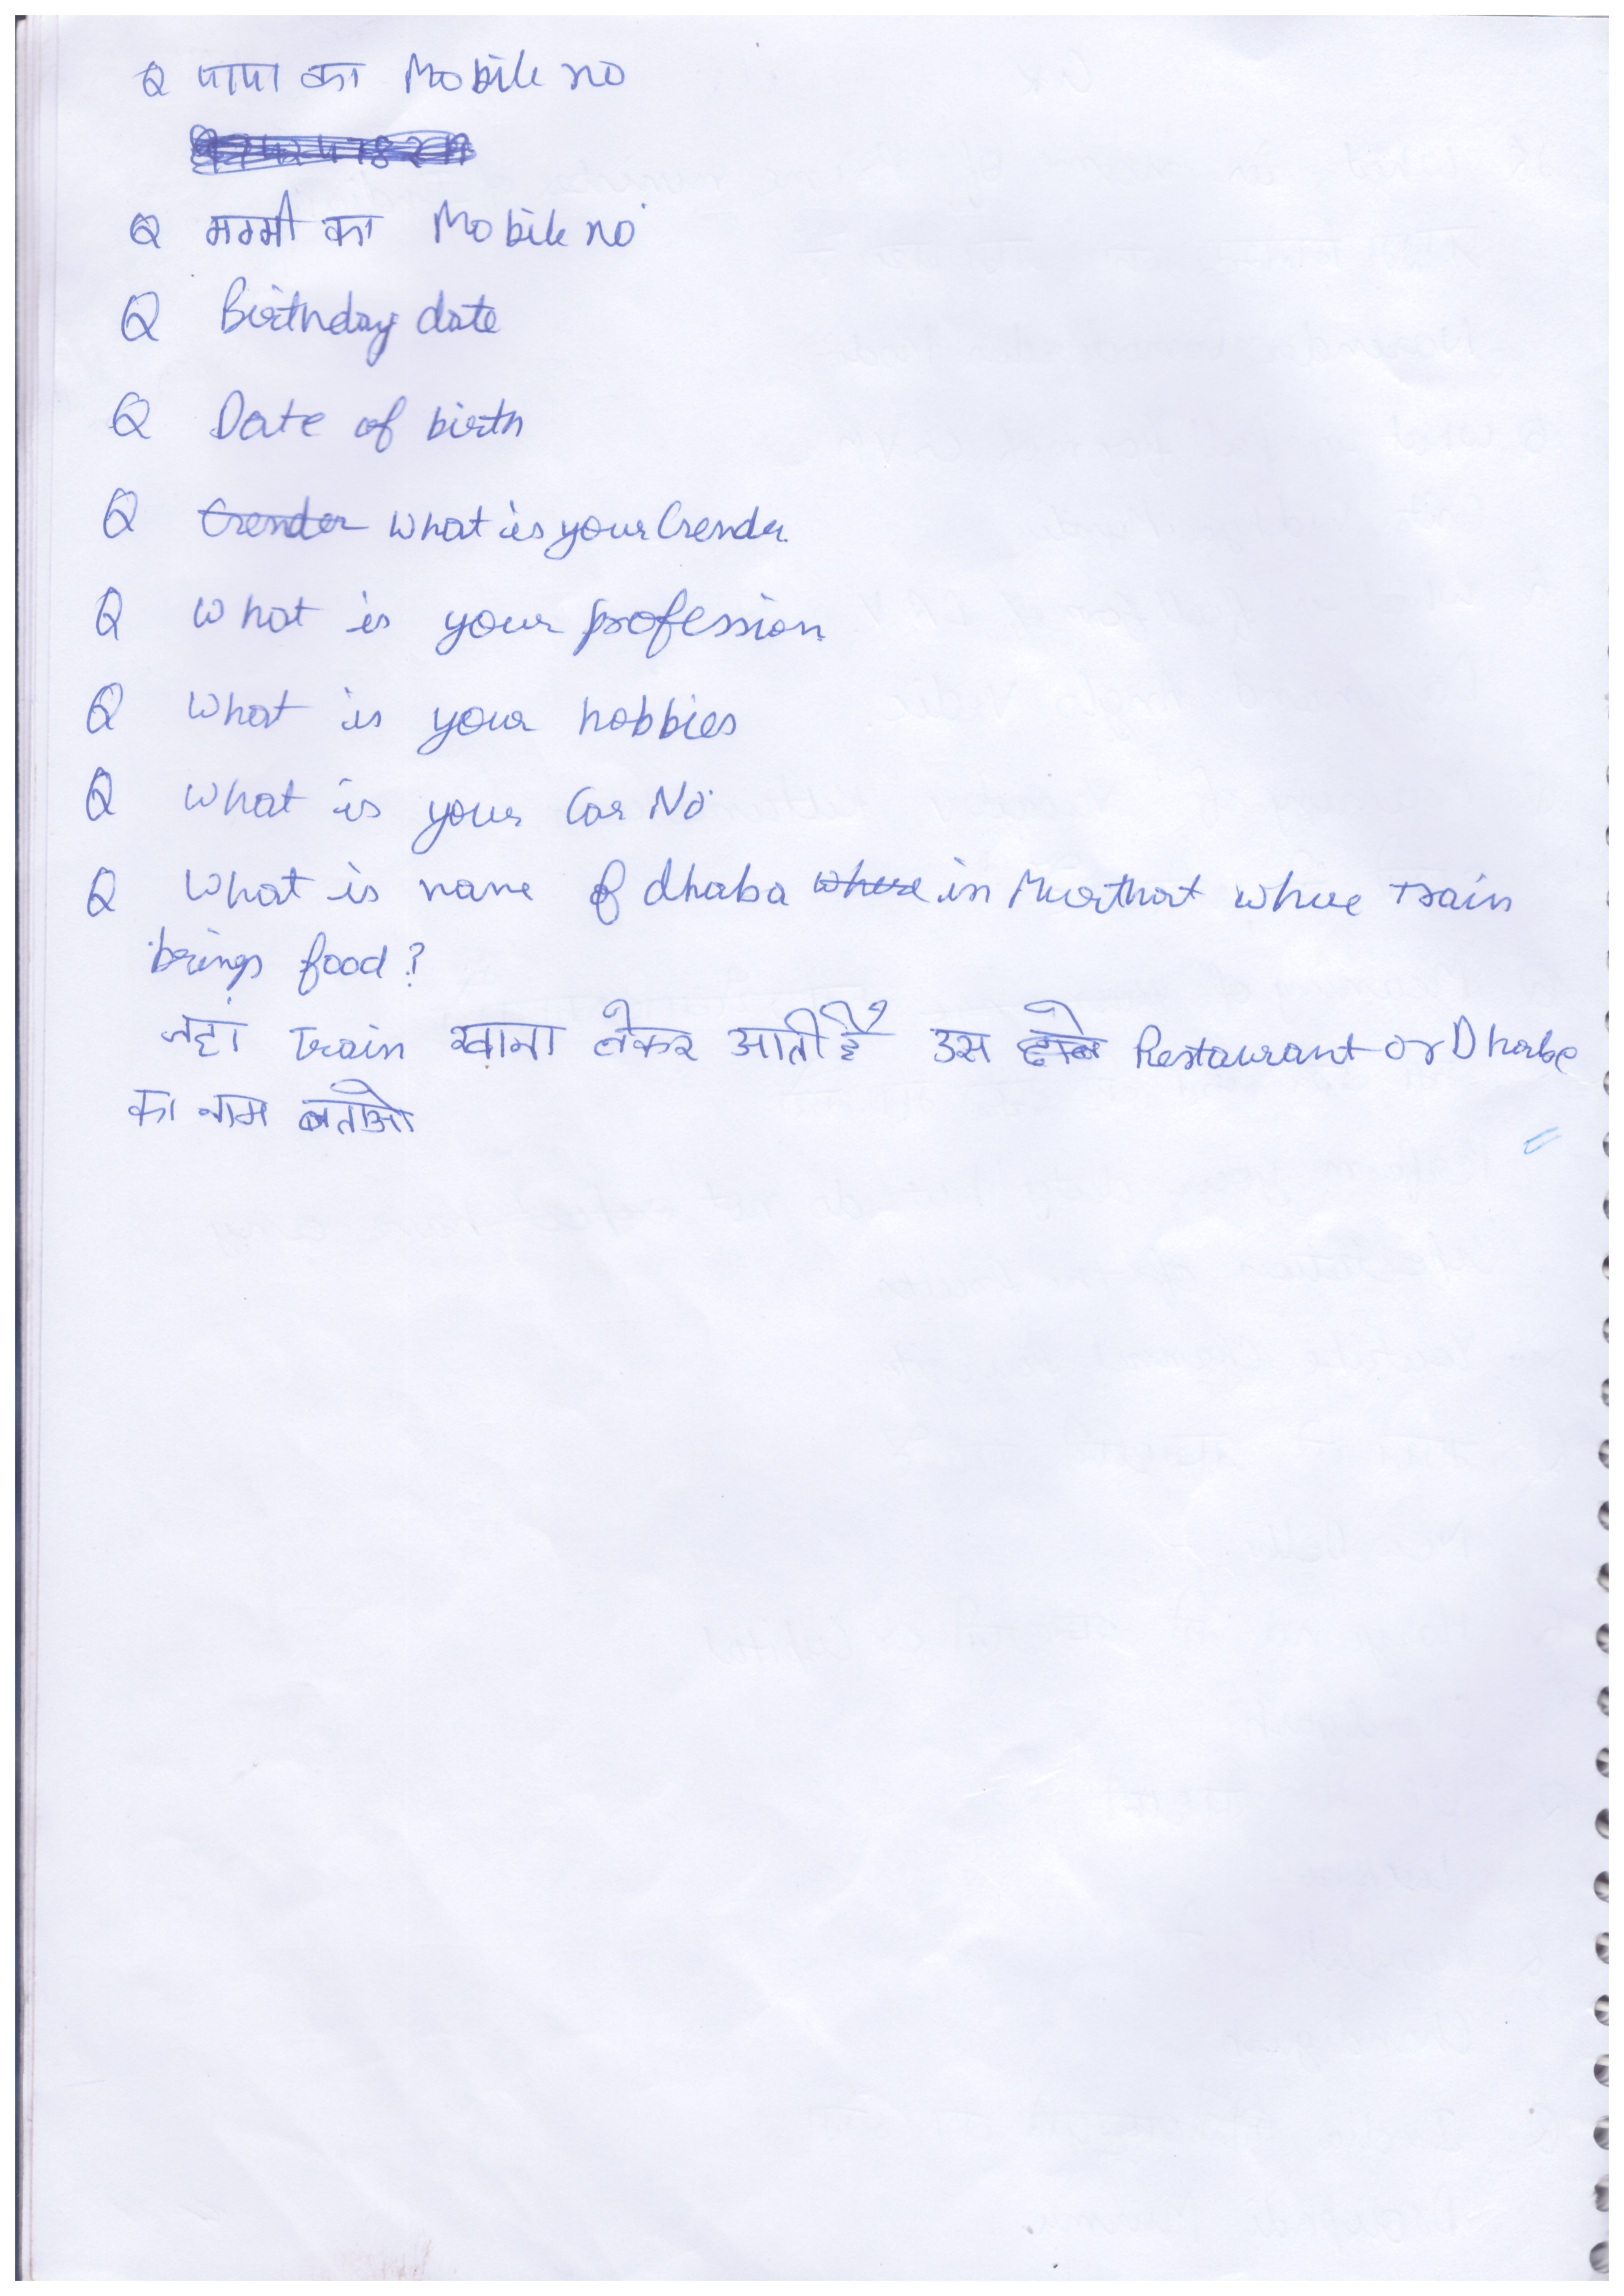 Q पापा का Mobile no
Q मम्मी का Mobile no
Q Birthday date
Q Date of birth
Q Gender What is your Gender
Q What is your profession
Q What is your hobbies
Q What is your Car No
Q What is name of dhaba where in Murthat where train
brings food?
जहां train खाना लेकर आती है उस ढाबे Restaurant or Dhabe
का नाम बताओ